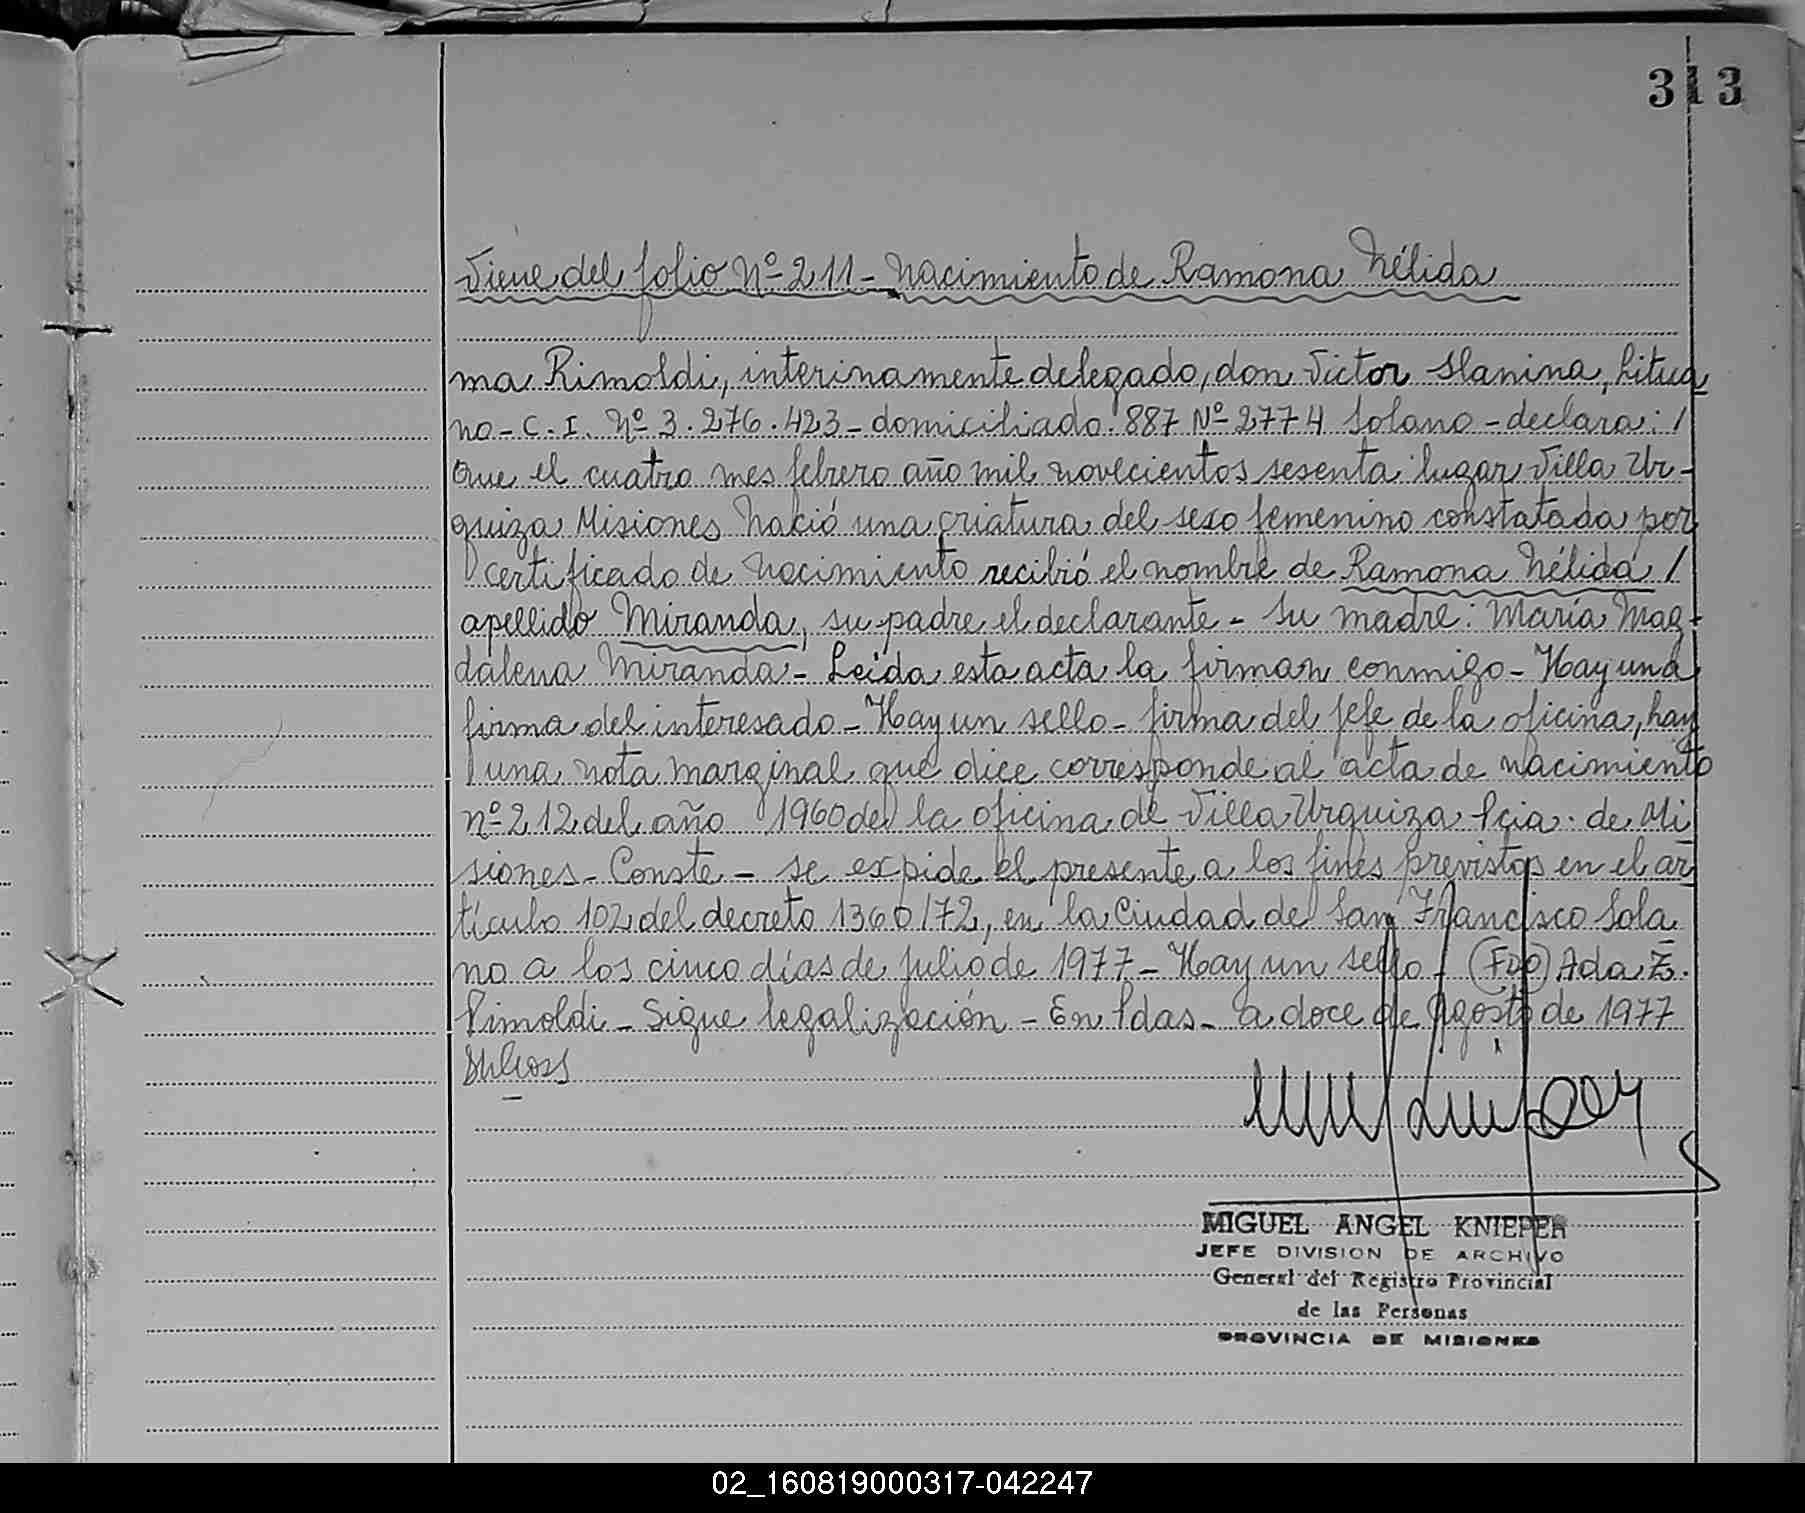 313
Viene del folio Nº 211 - Nacimiento de Ramona Nélida
ma Rimoldi, interinamente delegado, don Victor Slanina, Litua
no - C. I. Nº 3.276.423 - domiciliado 887 Nº 2774 Solano - declara: /
Que el cuatro mes febrero año mil novecientos sesenta lugar Villa Ur-
quiza Misiones Nació una criatura del sexo femenino constatada por
certificado de Nacimiento recibió el nombre de Ramona Nélida /
apellido Miranda, su padre el declarante - Su madre: María Mag-
dalena Miranda - Leída esta acta la firman conmigo - Hay una
firma del interesado - Hay un sello - firma del Jefe de la oficina, hay
una nota marginal que dice corresponde al acta de nacimiento
nº 212 del año 1960 de la oficina de Villa Urquiza Pcia. de Mi
siones - Conste - se expide el presente a los fines previstos en el ar
tículo 102 del decreto 1360/72, en la Ciudad de San Francisco Sola
no a los cinco días de Julio de 1977 - Hay un sello - (FDO) Ada E.
Rimoldi - Sigue legalización - En Pdas - a doce de Agosto de 1977
MIGUEL ANGEL KNIEPER
JEFE DIVISION DE ARCHIVO
General del Registro Provincial
de las Personas
PROVINCIA DE MISIONES
02_160819000317-042247